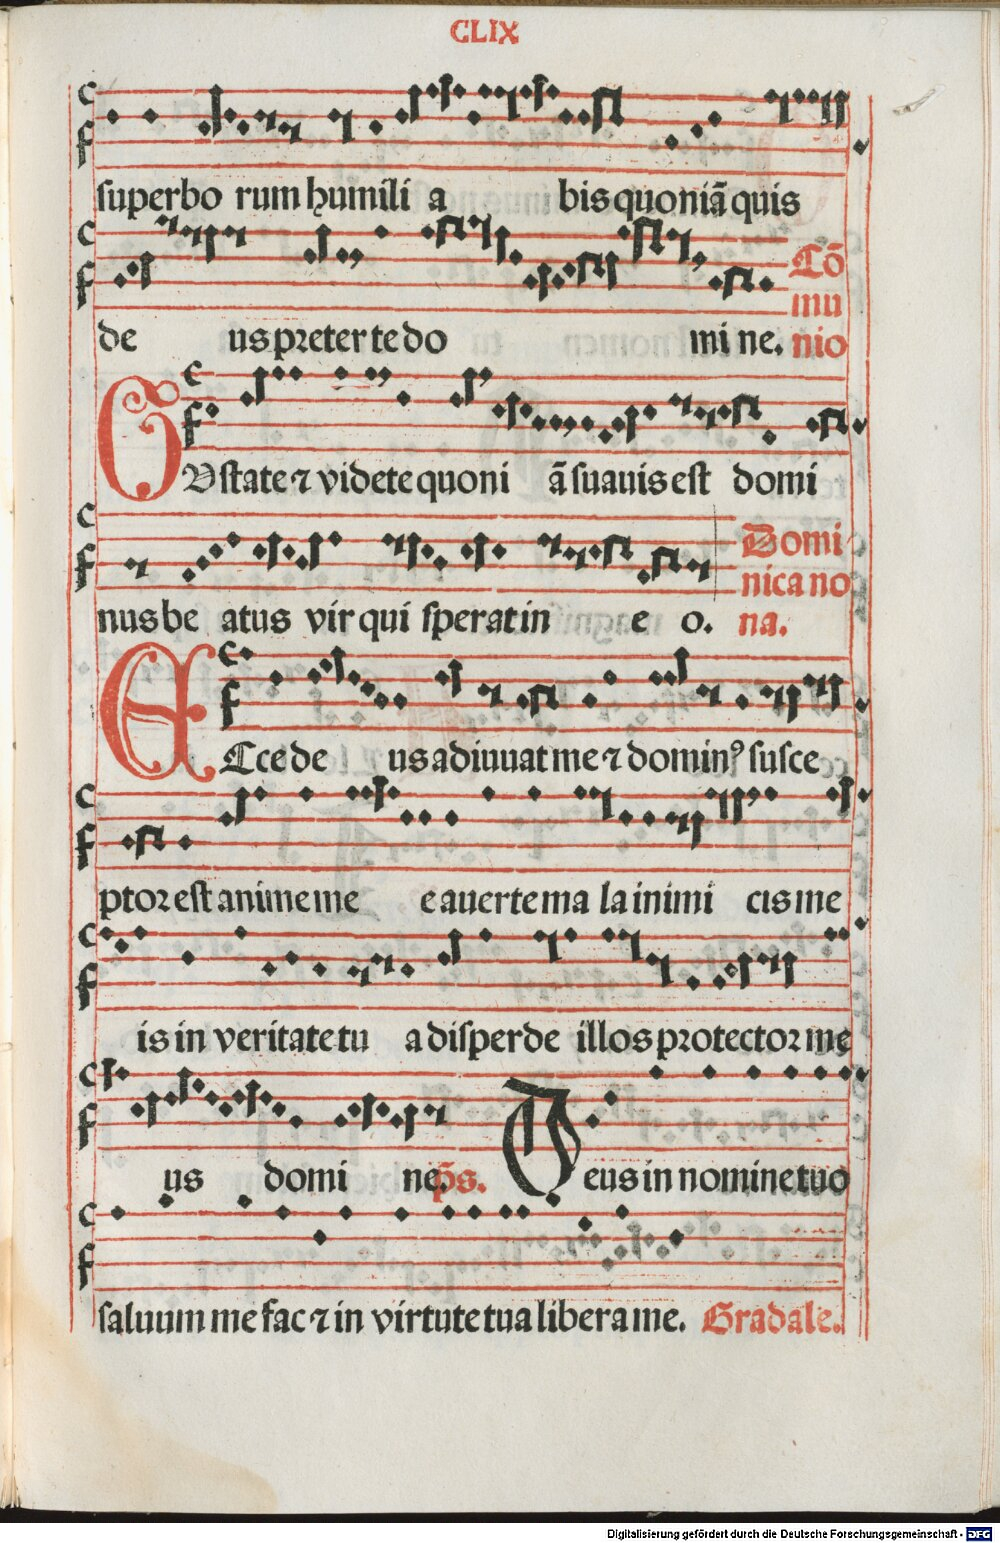 CLIX
superbo rum humili a bis quoniā quis
de us preter te do mi ne. Cō
mu
nio
GVstate ⁊ videte quoni ā suauis est domi
nus be atus vir qui sperat in e o. Domi
nica no
na.
ECce de us adiuuat me ⁊ dominꝰ susce
ptor est anime me e auerte ma la inimi cis me
is in veritate tu a disperde illos protector me
us domi ne. p̄s. Deus in nomine tuo
saluum me fac ⁊ in virtute tua libera me. Gradale.
Digitalisierung gefördert durch die Deutsche Forschungsgemeinschaft - DFG